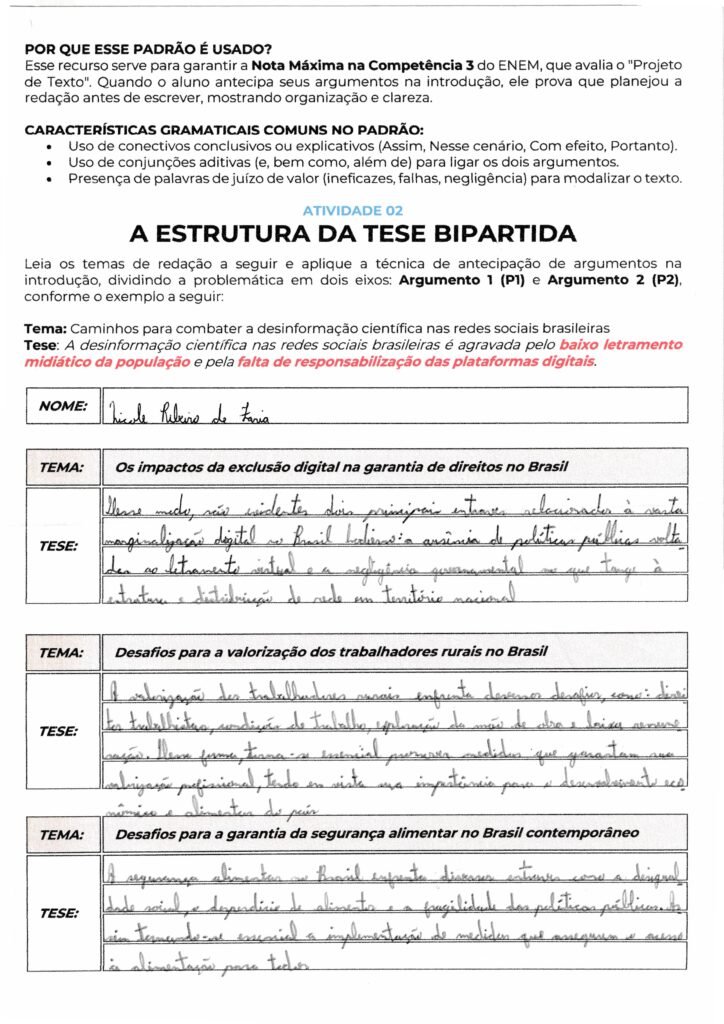 POR QUE ESSE PADRÃO É USADO?
Esse recurso serve para garantir a Nota Máxima na Competência 3 do ENEM, que avalia o "Projeto
de Texto". Quando o aluno antecipa seus argumentos na introdução, ele prova que planejou a
redação antes de escrever, mostrando organização e clareza.
CARACTERÍSTICAS GRAMATICAIS COMUNS NO PADRÃO:
• Uso de conectivos conclusivos ou explicativos (Assim, Nesse cenário, Com efeito, Portanto).
• Uso de conjunções aditivas (e, bem como, além de) para ligar os dois argumentos.
• Presença de palavras de juízo de valor (ineficazes, falhas, negligência) para modalizar o texto.
ATIVIDADE 02
A ESTRUTURA DA TESE BIPARTIDA
Leia os temas de redação a seguir e aplique a técnica de antecipação de argumentos na
introdução, dividindo a problemática em dois eixos: Argumento 1 (P1) e Argumento 2 (P2),
conforme o exemplo a seguir:
Tema: Caminhos para combater a desinformação científica nas redes sociais brasileiras
Tese: A desinformação científica nas redes sociais brasileiras é agravada pelo baixo letramento
midiático da população e pela falta de responsabilização das plataformas digitais.
NOME: Nicole Ribeiro de Faria
TEMA: Os impactos da exclusão digital na garantia de direitos no Brasil
TESE: Desse modo, são evidentes dois principais entraves relacionados à vasta
marginalização digital no Brasil hodierno: a ausência de políticas públicas volta-
das ao letramento virtual e a negligência governamental no que tange à
estrutura e distribuição de rede em território nacional
TEMA: Desafios para a valorização dos trabalhadores rurais no Brasil
TESE: A valorização dos trabalhadores rurais enfrenta diversos desafios, como: direi
tos trabalhistas, condições de trabalho, exploração da mão de obra e baixa remune
ração. Dessa forma, torna-se essencial promover medidas que garantam sua
valorização profissional, tendo em vista sua importância para o desenvolvimento eco
nômico e alimentar do país
TEMA: Desafios para a garantia da segurança alimentar no Brasil contemporâneo
TESE: A segurança alimentar no Brasil enfrenta diversos entraves como a desigual
dade social, o desperdício de alimentos e a fragilidade das políticas públicas. As
sim tornando-se essencial a implementação de medidas que assegurem o acesso
à alimentação para todos